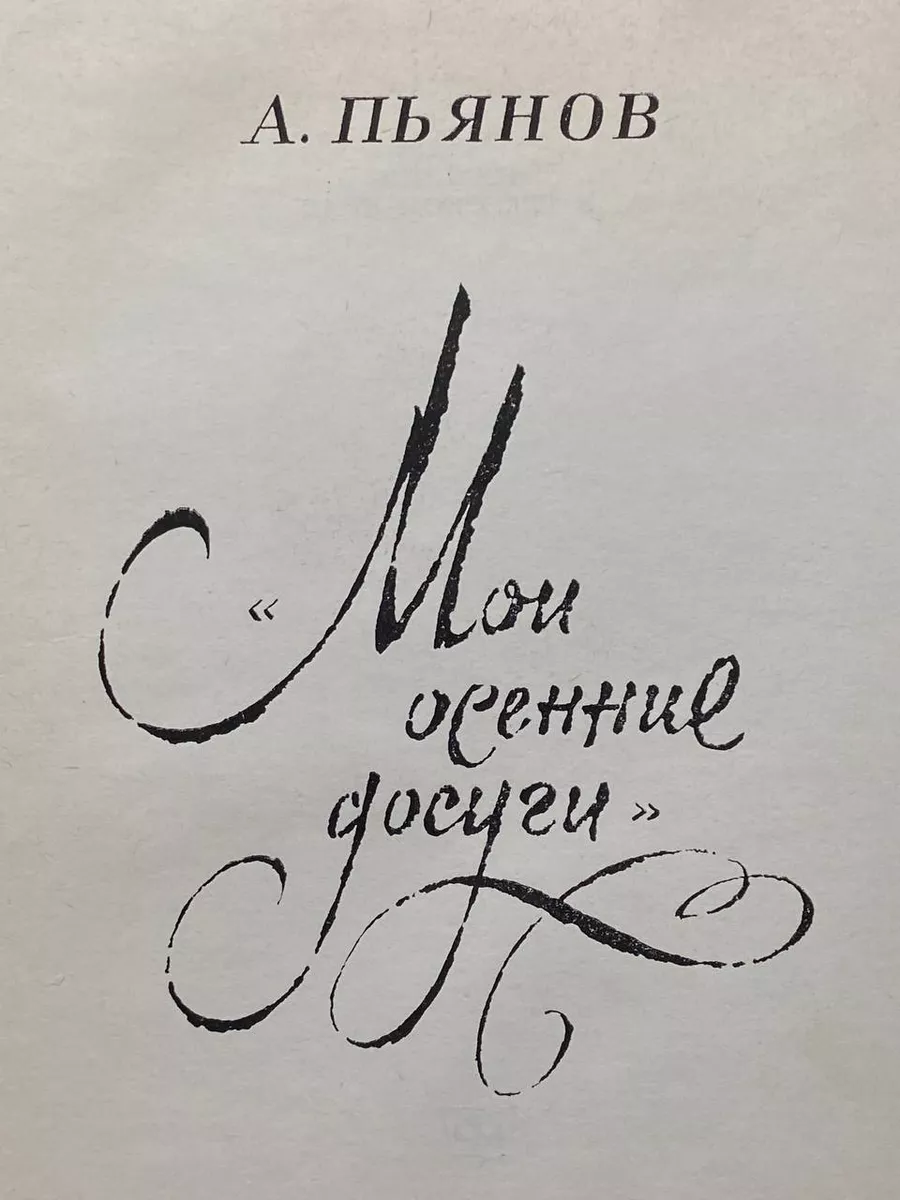 А. ПЬЯНОВ
«Мои
осенние
досуги»